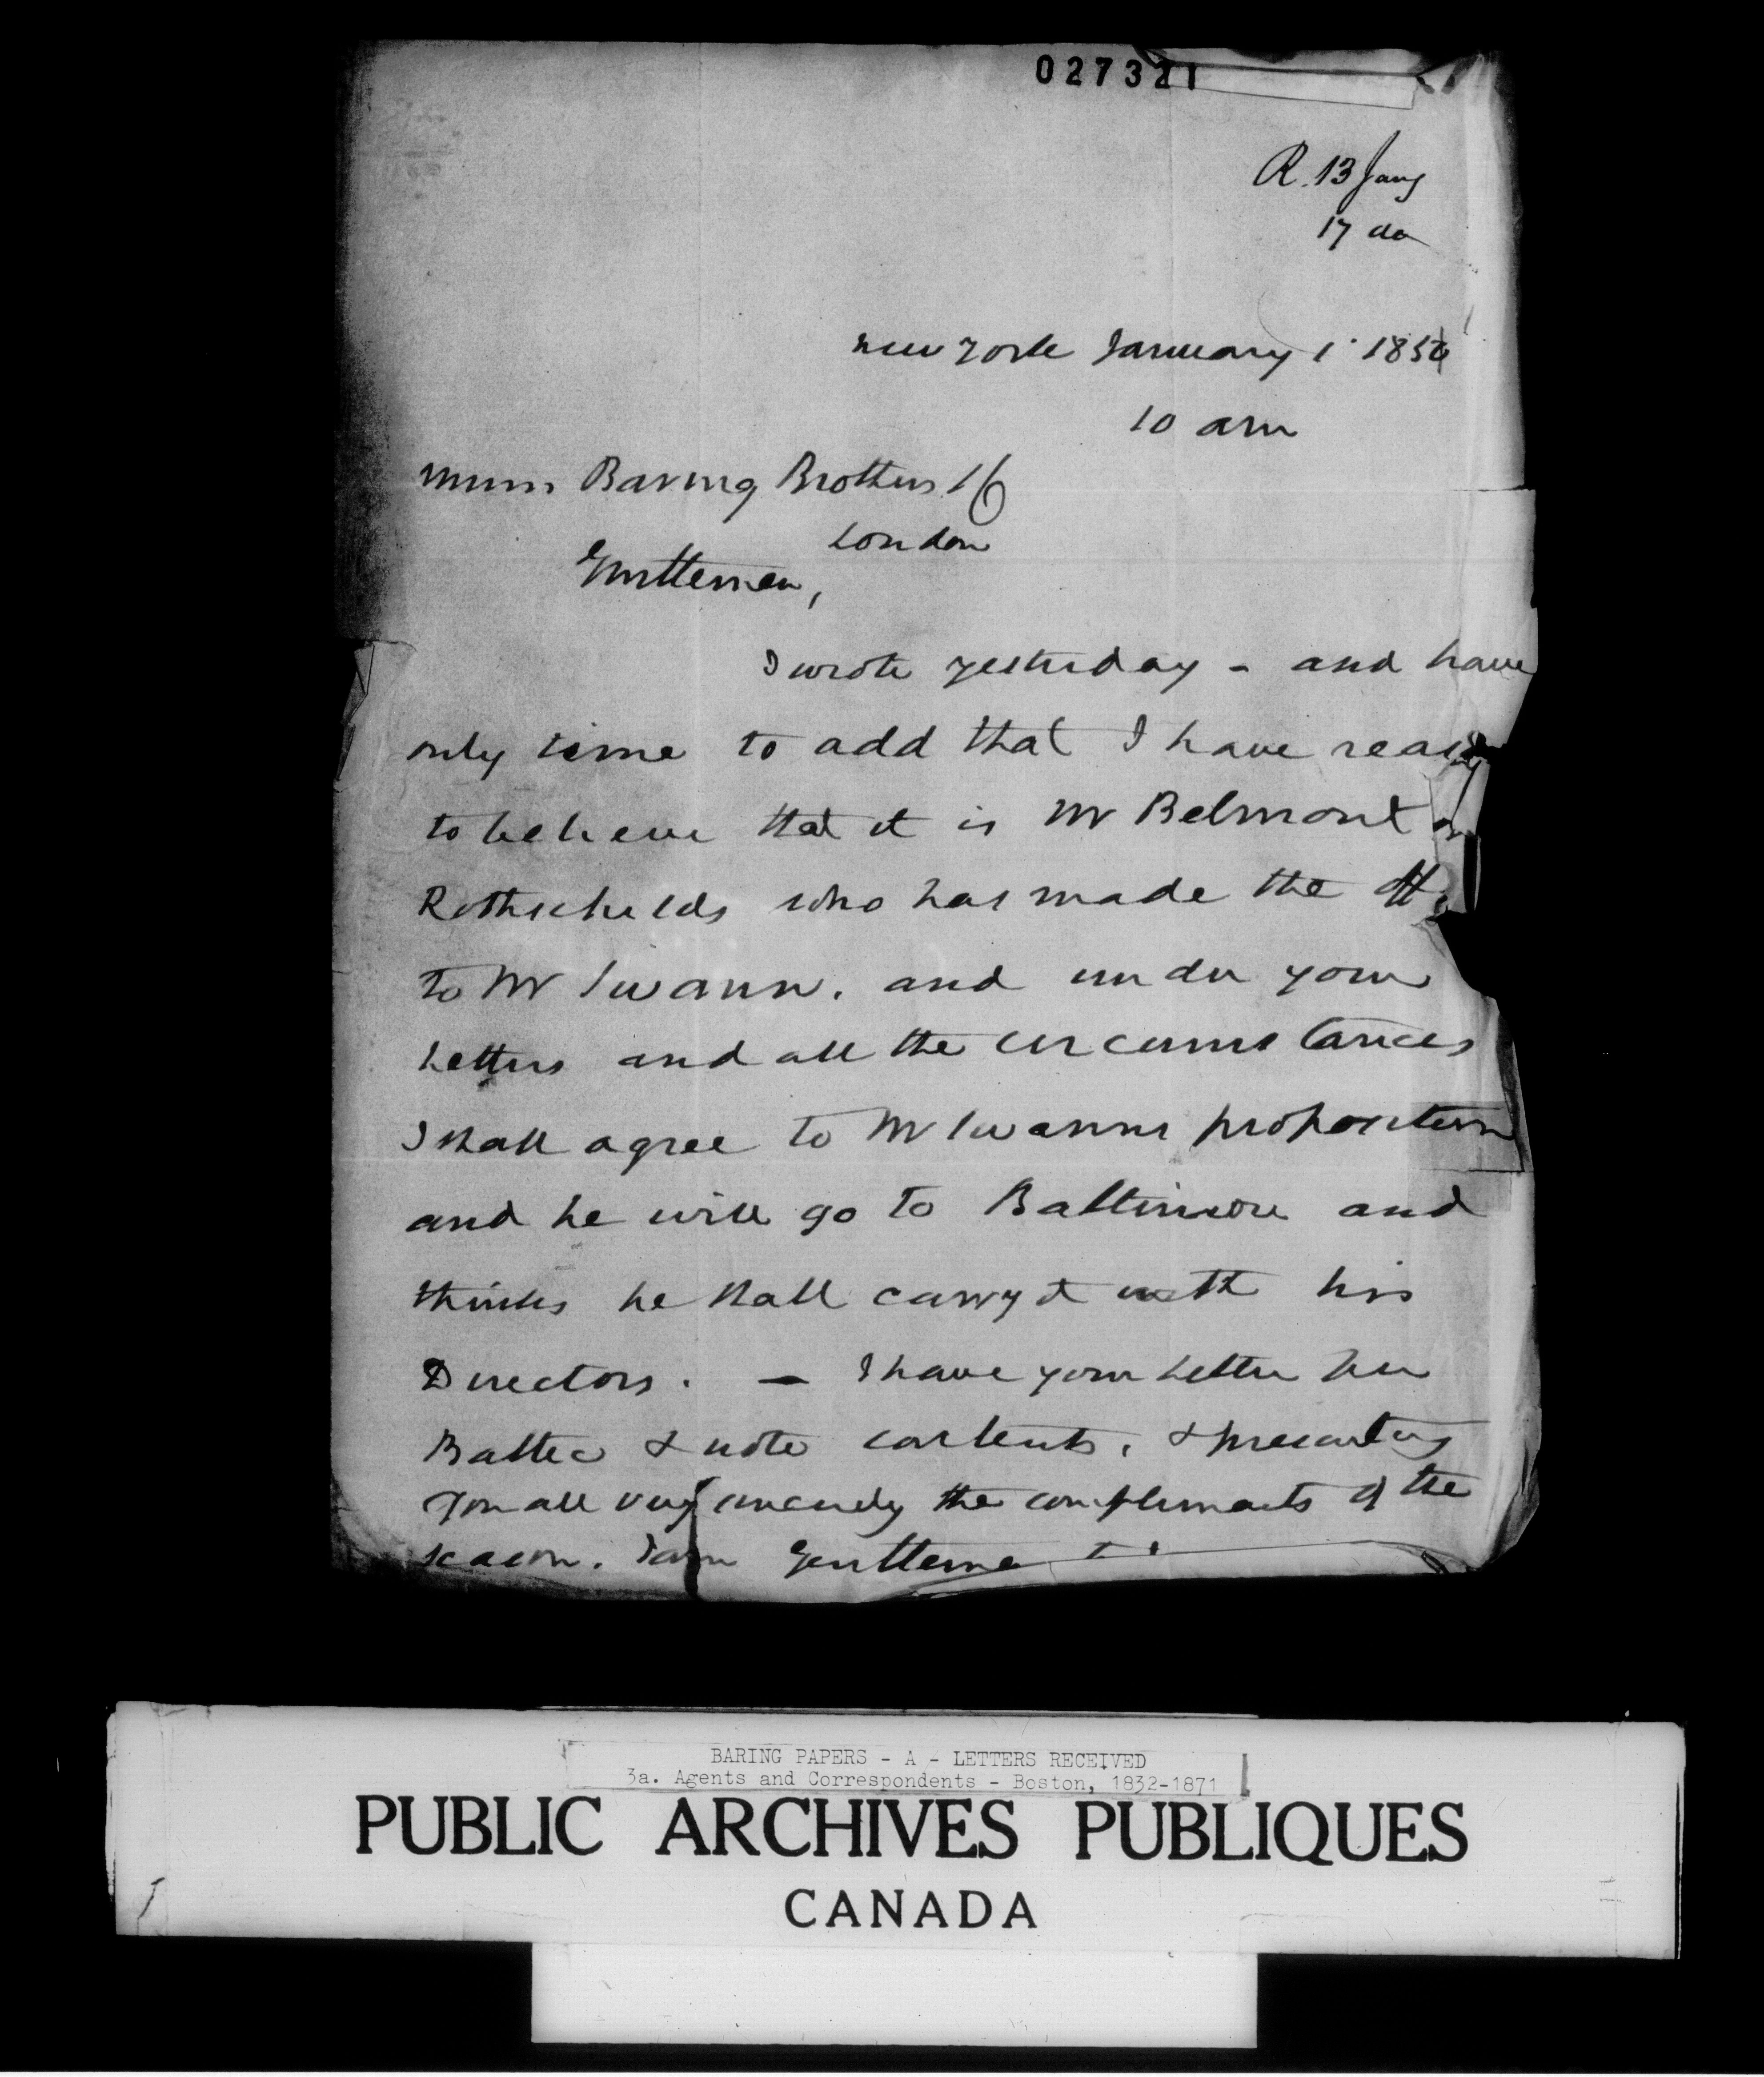 027321
R. 13 Jany
17 do
New York January 1. 185
10 am
Messrs Baring Brothers & Co
London
Gentlemen,
I wrote yesterday - and have
only time to add that I have reason
to believe that it is Mr Belmont
Rothschilds who has made the
to Mr Swann. and under your
Letters and all the circumstances
I shall agree to Mr Swanns proposition
and he will go to Baltimore and
thinks he shall carry it with his
Directors. — I have your Letter
Baltic & note contents, & presenting
you all very sincerely the compliments of the
season. I am Gentlemen
BARING PAPERS - A - LETTERS RECEIVED
3a. Agents and Correspondents - Boston, 1832-1871
PUBLIC ARCHIVES PUBLIQUES
CANADA